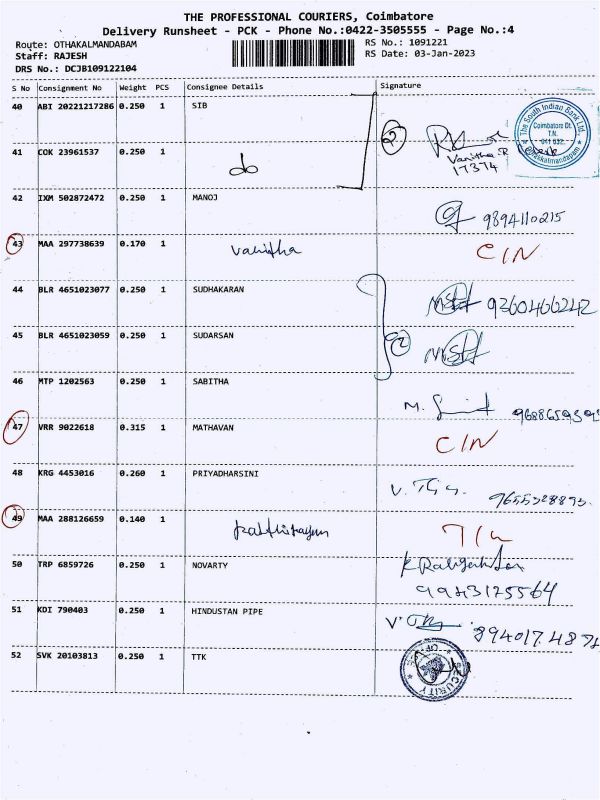 THE PROFESSIONAL COURIERS, Coimbatore
Delivery Runsheet - PCK - Phone No.:0422-3505555 - Page No.:4
Route: OTHAKALMANDABAM RS No.: 1091221
Staff: RAJESH RS Date: 03-Jan-2023
DRS No.: DCJB109122104
S No Consignment No Weight PCS Consignee Details Signature
40 ABI 20221217286 0.250 1 SIB
The South Indian Bank Ltd.
Coimbatore Dt.
T.N.
641 032.
Othakkalmandapam
41 COK 23961537 0.250 1 do 2 Vanitha.R Clerk
17374
42 IXM 502872472 0.250 1 MANOJ 9894110215
43 MAA 297738639 0.170 1 Vanitha C/N
44 BLR 4651023077 0.250 1 SUDHAKARAN 9360466242
45 BLR 4651023059 0.250 1 SUDARSAN 2
46 MTP 1202563 0.250 1 SABITHA M.
47 VRR 9022618 0.315 1 MATHAVAN C/N
48 KRG 4453016 0.260 1 PRIYADHARSINI V. 9655328893
49 MAA 288126659 0.140 1
50 TRP 6859726 0.250 1 NOVARTY
9943125564
51 KDI 790403 0.250 1 HINDUSTAN PIPE
52 SVK 20103813 0.250 1 TTK SECURITY OFFICE